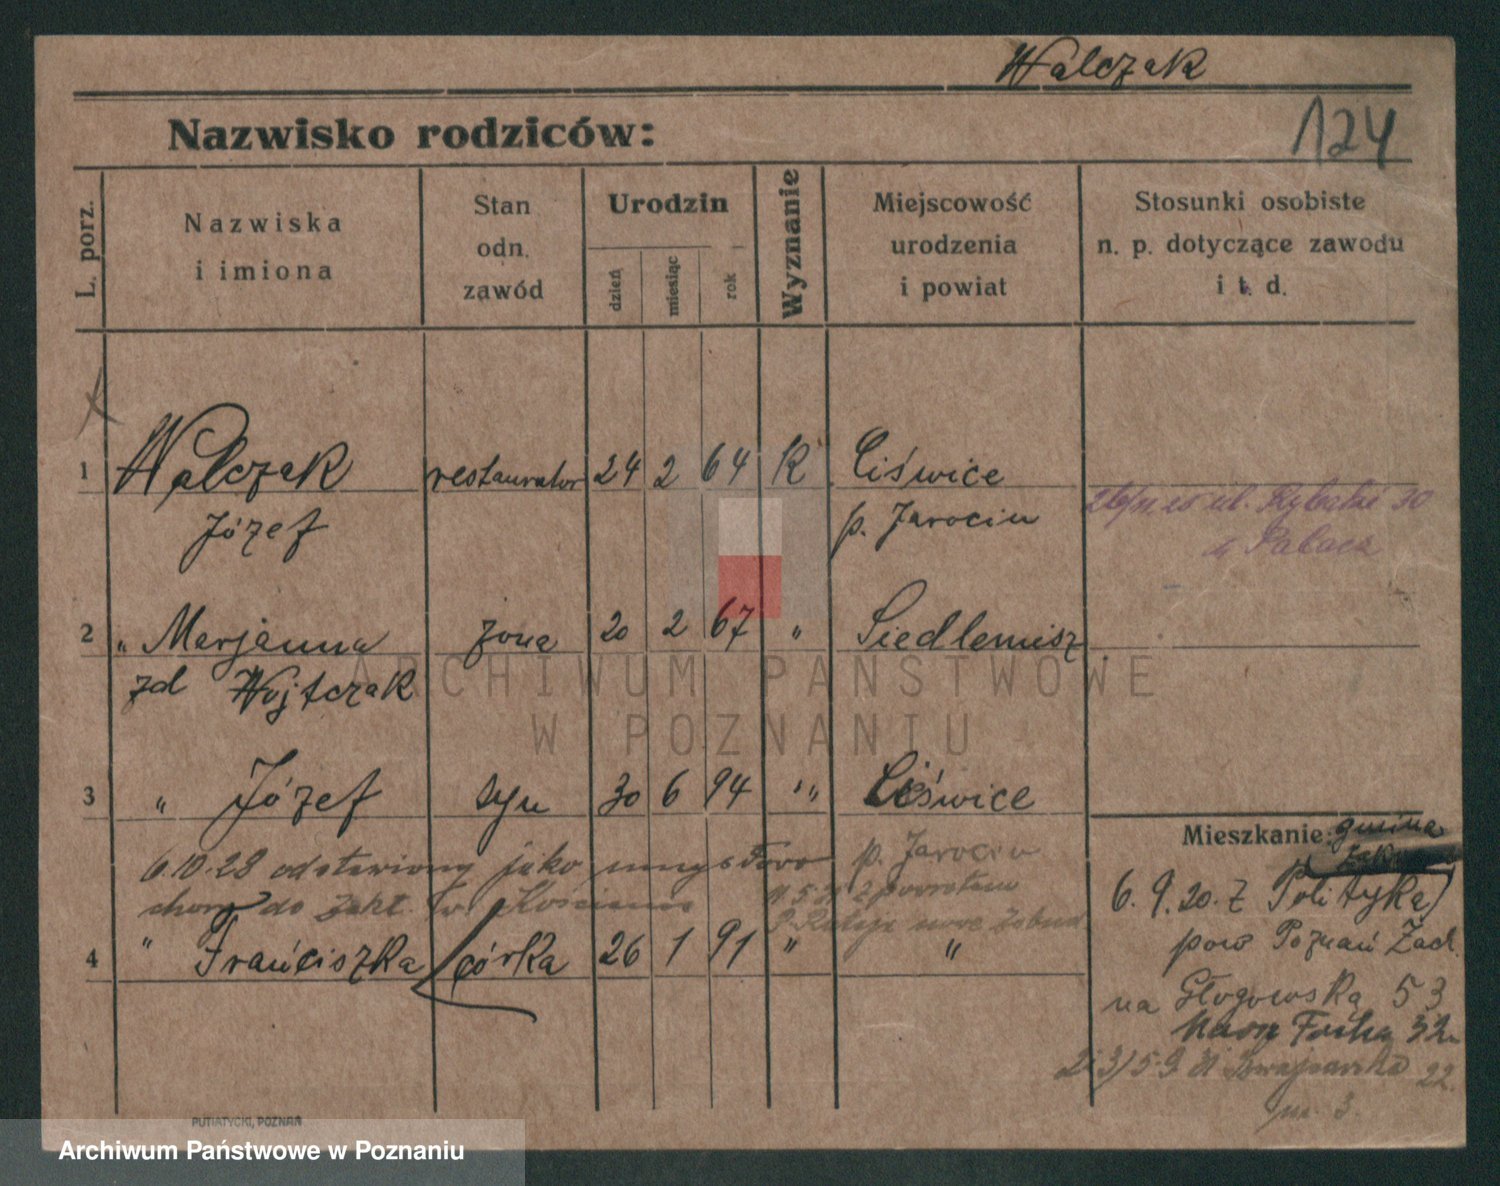 Walczak
124
Nazwisko rodziców:
L. porz.
Nazwiska
i imiona
Stan
odn.
zawód
Urodzin
dzień
miesiąc
rok
Wyznanie
Miejscowość
urodzenia
i powiat
Stosunki osobiste
n. p. dotyczące zawodu
i t. d.
1 Walczak restaurator 24 2 64 K Ciświce
Józef p. Jarocin
ul. Rybaki 30
Palacz
2 " Marjanna żona 20 2 67 " Siedlemisz
zd Wojtczak
3 " Józef syn 30 6 94 " Ciświce
p. Jarocin
6.10.28 odstawiony jako umysłowo
chory do Zakł. w Kościanie
4 " Franciszka córka 26 1 91 " "
Mieszkanie: gmina
6. 9. 20. z Polityka)
pow Poznań Zach.
na Głogowska 53
Focha 32
22
m. 3.
PUTIATYCKI, POZNAŃ
ARCHIWUM PAŃSTWOWE
W POZNANIU
Archiwum Państwowe w Poznaniu